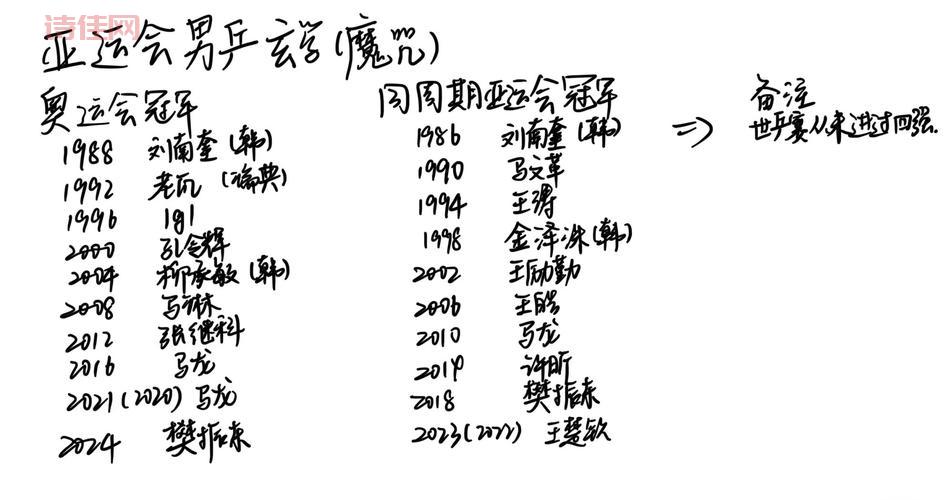 诗佳网
亚运会男乒玄学(魔咒)
奥运会冠军
1988 刘南奎(韩)
1992 老瓦(瑞典)
1996 lgl
2000 孔令辉
2004 柳承敏(韩)
2008 马琳
2012 张继科
2016 马龙
2021(2020) 马龙
2024 樊振东
同周期亚运会冠军
1986 刘南奎(韩)
1990 马文革
1994 王涛
1998 金泽洙(韩)
2002 王励勤
2006 王皓
2010 马龙
2014 许昕
2018 樊振东
2023(2022) 王楚钦
⇒
备注
世乒赛从未进过四强.